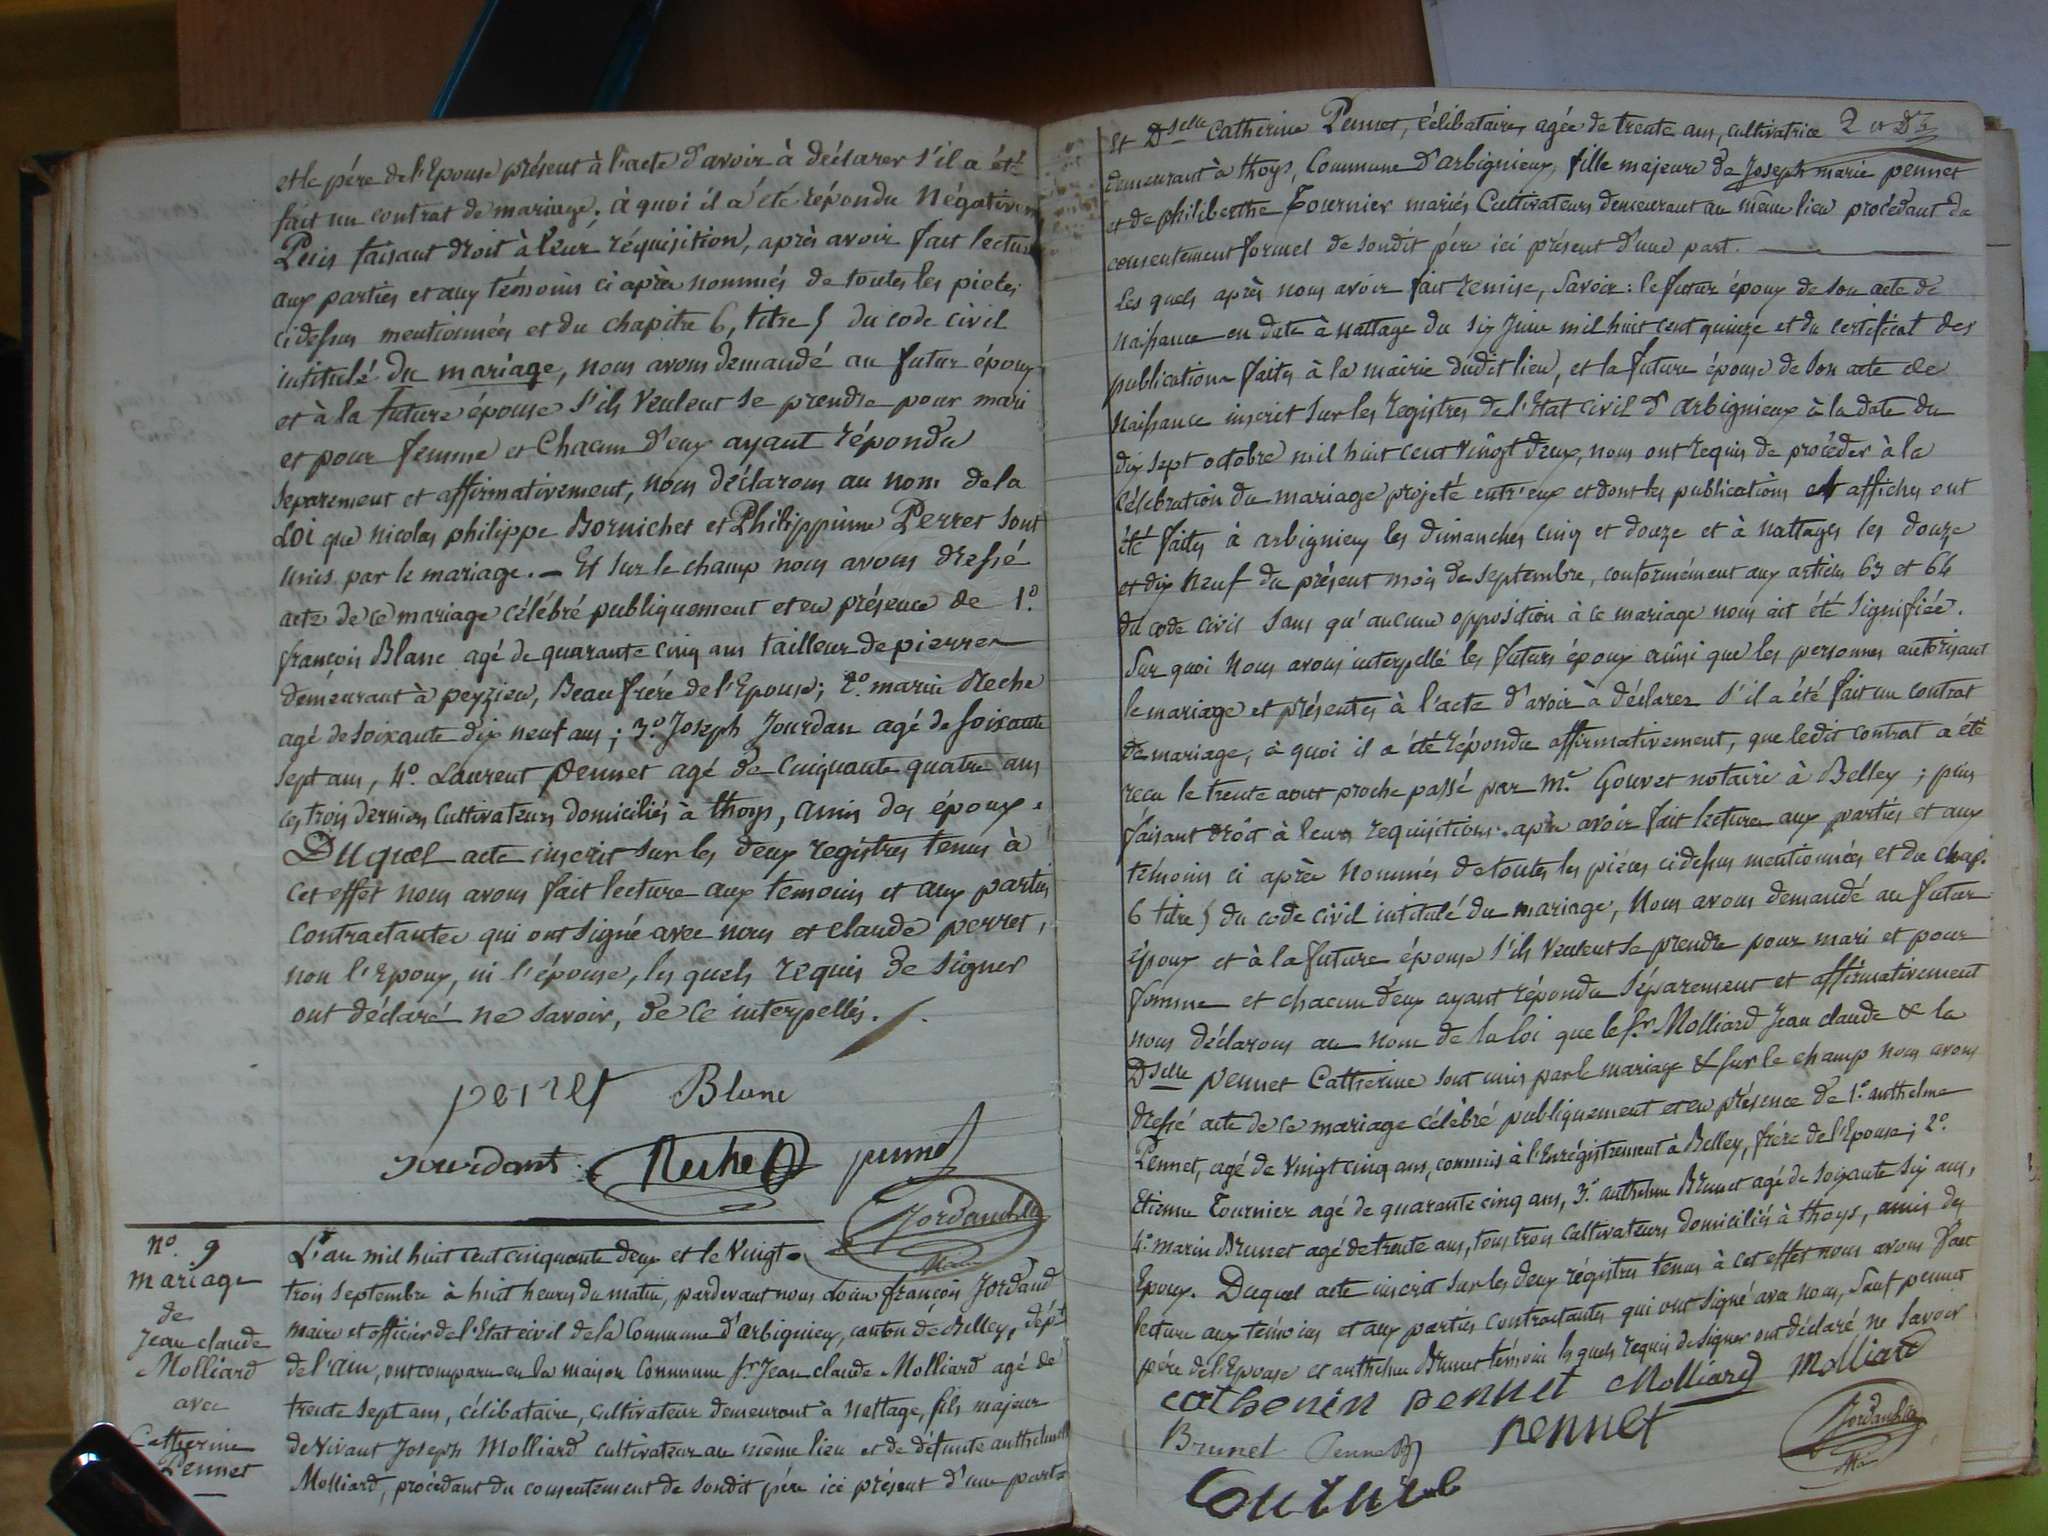 et le père de l'Epouse présent à l'acte d'avoir à déclarer s'il a été
fait un contrat de mariage; à quoi il a été répondu Négativem
Puis faisant droit à leur réquisition, après avoir fait lecture
aux parties et aux témoins ci après nommés de toutes les pieces
cidessus mentionnées et du chapitre 6, titre 5 du code civil
intitulé du mariage, nous avons demandé au futur époux
et à la future épouse s'ils veulent se prendre pour mari
et pour femme et chacun d'eux ayant répondu
séparement et affirmativement, nous déclarons au nom de la
Loi que nicolas philippe Bornichet et Philippine Perret sont
unis par le mariage. — Et sur le champ nous avons dressé
acte de ce mariage célébré publiquement et en présence de 1.°
françois Blanc agé de quarante cinq ans tailleur de pierres
demeurant à peyzieu, Beau frère de l'Epouse; 2.° marin Reche
agé de soixante dix neuf ans; 3.° Joseph Jourdan agé de soixante
sept ans, 4.° Laurent pennet agé de cinquante quatre ans
ces trois derniers cultivateurs domiciliés à thoys, amis des époux.
Duquel acte inscrit sur les deux registres tenus à
cet effet nous avons fait lecture aux temoins et aux parties
contractantes qui ont signé avec nous et claude perret,
non l'Epoux, ni l'épouse, les quels requis de signer
ont déclaré ne savoir, de ce interpellés.
perret Blanc
jourdant Reche pennet
Jordan
N°. 9
mariage
de
Jean claude
Molliard
avec
Catherine
Pennet
L'an mil huit cent cinquante deux et le vingt
trois septembre à huit heures du matin, pardevant nous françois Jordand
maire et officier de l'Etat civil de la Commune d'arbignieux, canton de Belley, dépt
de l'ain, ont comparu en la maison commune Sr. Jean claude Molliard agé de
trente sept ans, célibataire, cultivateur demeurant à nattage, fils majeur
de vivant Joseph Molliard cultivateur au même lieu et de défunte anthelmette
Molliard, procédant du consentement de sondit père ici présent d'une part
Et Dselle Catherine Pennet, célibataire, agée de trente ans, cultivatrice
demeurant à thoys, Commune d'arbignieux, fille majeure de Joseph marie pennet
et de philiberthe Tournier mariés Cultivateurs demeurant au meme lieu procedant du
consentement formel de sondit père ici présent d'une part.
Les quels après nous avoir fait remise, savoir: le futur époux de son acte de
naissance en date à nattage du six Juin mil huit cent quinze et du certificat des
publications faites à la mairie dudit lieu, et la future épouse de son acte de
naissance inscrit sur les registres de l'Etat civil d'arbignieux à la date du
dix sept octobre mil huit cent vingt deux, nous ont requis de procéder à la
célébration du mariage projeté entr'eux et dont les publications et affiches ont
été faites à arbignieux les dimanches cinq et douze et à nattages les douze
et dix neuf du présent mois de septembre, conformément aux articles 63 et 64
du code civil sans qu'aucune opposition à ce mariage nous ait été signifiée.
Sur quoi nous avons interpellé les futurs époux ainsi que les personnes autorisant
le mariage et présentes à l'acte d'avoir à déclarer s'il a été fait un contrat
de mariage, à quoi il a été répondu affirmativement, que ledit contrat a été
recu le trente aout proche passé par me. Gouvet notaire à Belley; puis
faisant droit à leurs requisitions après avoir fait lecture aux parties et aux
témoins ci après nommés de toutes les pièces cidessus mentionnées et du chap.
6 titre 5 du code civil intitulé du mariage, nous avons demandé au futur
époux et à la future épouse s'ils veulent se prendre pour mari et pour
femme et chacun d'eux ayant répondu séparement et affirmativement
nous déclarons au nom de la loi que le Sr. Molliard Jean claude & la
Dselle pennet Catherine sont unis par le mariage & sur le champ nous avons
dressé acte de ce mariage célébré publiquement et en présence de 1.° anthelme
Pennet, agé de vingt cinq ans, commis à l'Enrégistrement à Belley, frère de l'Epouse; 2.°
Etienne Tournier agé de quarante cinq ans, 3.° anthelme Brunet agé de soixante six ans,
4.° marin Brunet agé de trente ans, tous trois cultivateurs domiciliés à thoys, amis des
Epoux. Duquel acte inscrit sur les deux régistres tenus à cet effet nous avons fait
lecture aux témoins et aux parties contractantes qui ont signé avec nous, Sauf pennet
père de l'Epouse et anthelme Brunet témoin les quels requis de signer ont déclaré ne savoir
catherin pennet Molliard Molliard
Brunet Pennet pennet
Jordan
tournier